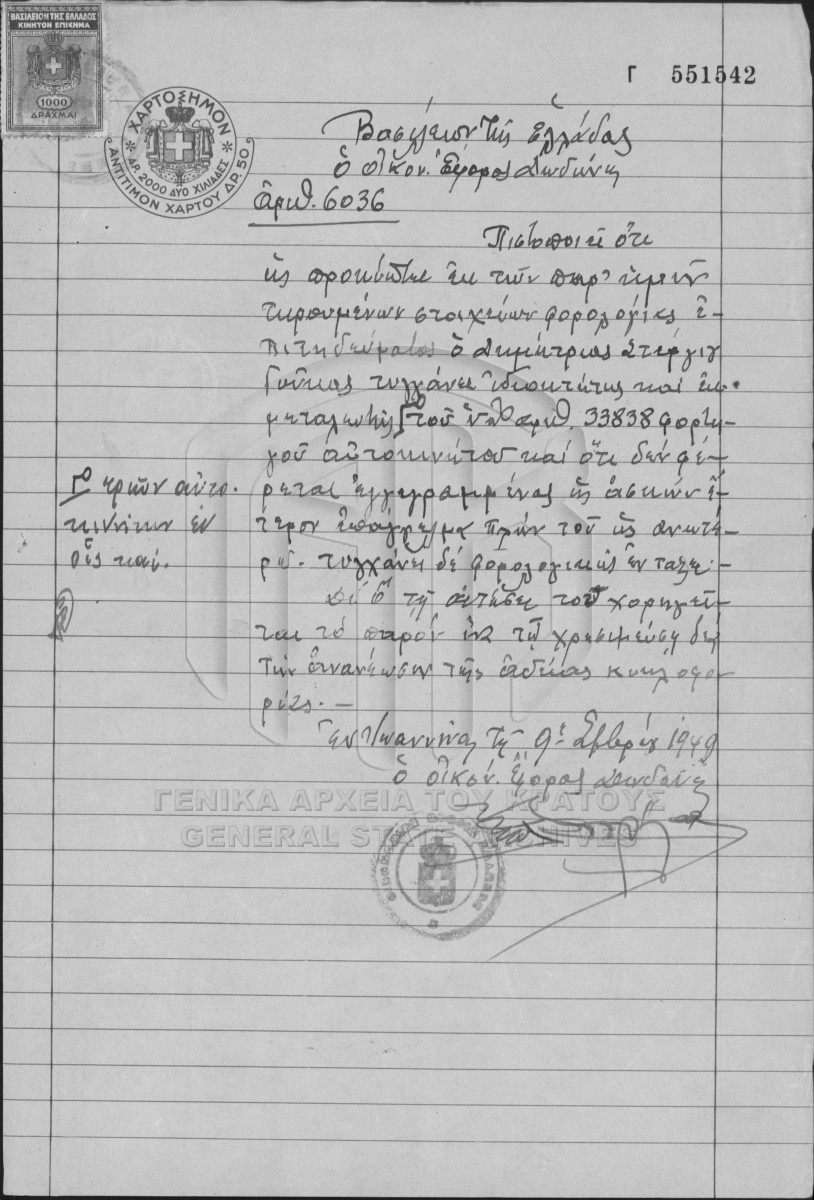 ΒΑΣΙΛΕΙΟΝ ΤΗΣ ΕΛΛΑΔΟΣ
ΚΙΝΗΤΟΝ ΕΠΙΣΗΜΑ
1000
ΔΡΑΧΜΑΙ
ΧΑΡΤΟΣΗΜΟΝ
ΔΡ. 2000 ΔΥΟ ΧΙΛΙΑΔΕΣ
ΑΝΤΙΤΙΜΟΝ ΧΑΡΤΟΥ ΔΡ. 50
Γ 551542
Βασίλειον τῆς Ἑλλάδος
Ὁ Οἰκον. Ἔφορος Δωδώνης
Ἀριθ. 6036
Πιστοποιεῖ ὅτι
ὡς προκύπτει ἐκ τῶν παρ' ἡμῖν
τηρουμένων στοιχείων φορολογίας ἐ-
πιτηδεύματος ὁ Δημήτριος Στεργίου
τυγχάνει ἰδιοκτήτης καὶ ἐκ-
μεταλλευτὴς τοῦ ὑπ' ἀριθ. 33838 φορτη-
γοῦ αὐτοκινήτου καὶ ὅτι δὲν φέ-
ρεται ἐγγεγραμμένος ὡς ἀσκῶν ἕ-
τερον ἐπάγγελμα πλὴν τοῦ ὡς ἀνωτέ-
ρω. τυγχάνει δὲ φορολογικῶς ἐν τάξει.-
τῇ αἰτήσει του χορηγεῖ-
ται τὸ παρὸν ἵνα τῷ χρησιμεύσῃ διὰ
τὴν ἀνανέωσιν τῆς ἀδείας κυκλοφο
ρίας.-
Ἐν Ἰωαννίνοις τῇ 9ῃ 1949
Ὁ Οἰκον. Ἔφορος Δωδώνης
τριῶν αὐτο-
κινήτων ἐν
οἷς καὶ.
ΓΕΝΙΚΑ ΑΡΧΕΙΑ ΤΟΥ ΚΡΑΤΟΥΣ
GENERAL STATE ARCHIVES